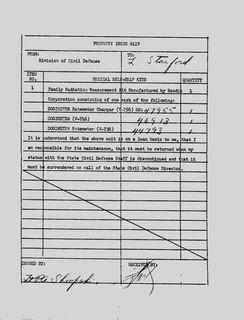 PROPERTY ISSUE SLIP
FROM: TO:
Division of Civil Defense Z Stanford
ITEM NO. MEDICAL SELF-HELP KITS QUANTITY
1 Family Radiation Measurement Kit Manufactured by Bendix 1
Corporation consisting of one each of the following:
DOSIMETER Ratemeter Charger (V-750) SER# 47955 1
DOSIMETER (V-746) 46913 1
DOSIMETER Ratemeter (V-736) 44793 1
It is understood that the above unit is on a loan basis to me, that I
am responsible for its maintenance, that it must be returned when my
status with the State Civil Defense Staff is discontinued and that it
must be surrendered on call of the State Civil Defense Director.
ISSUED BY: RECEIVED BY: